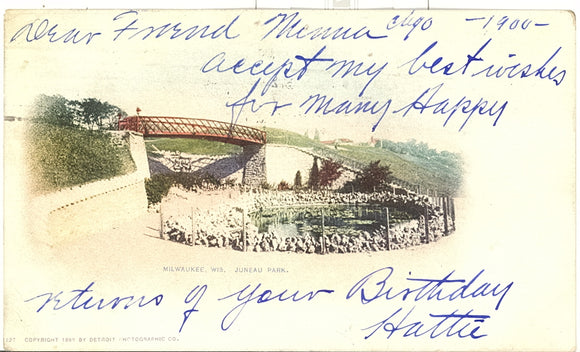 Dear Friend Menna Chgo -1900-
accept my best wishes
for Many Happy
MILWAUKEE, WIS. JUNEAU PARK.
returns of your Birthday
Hattie
COPYRIGHT BY DETROIT PHOTOGRAPHIC CO.